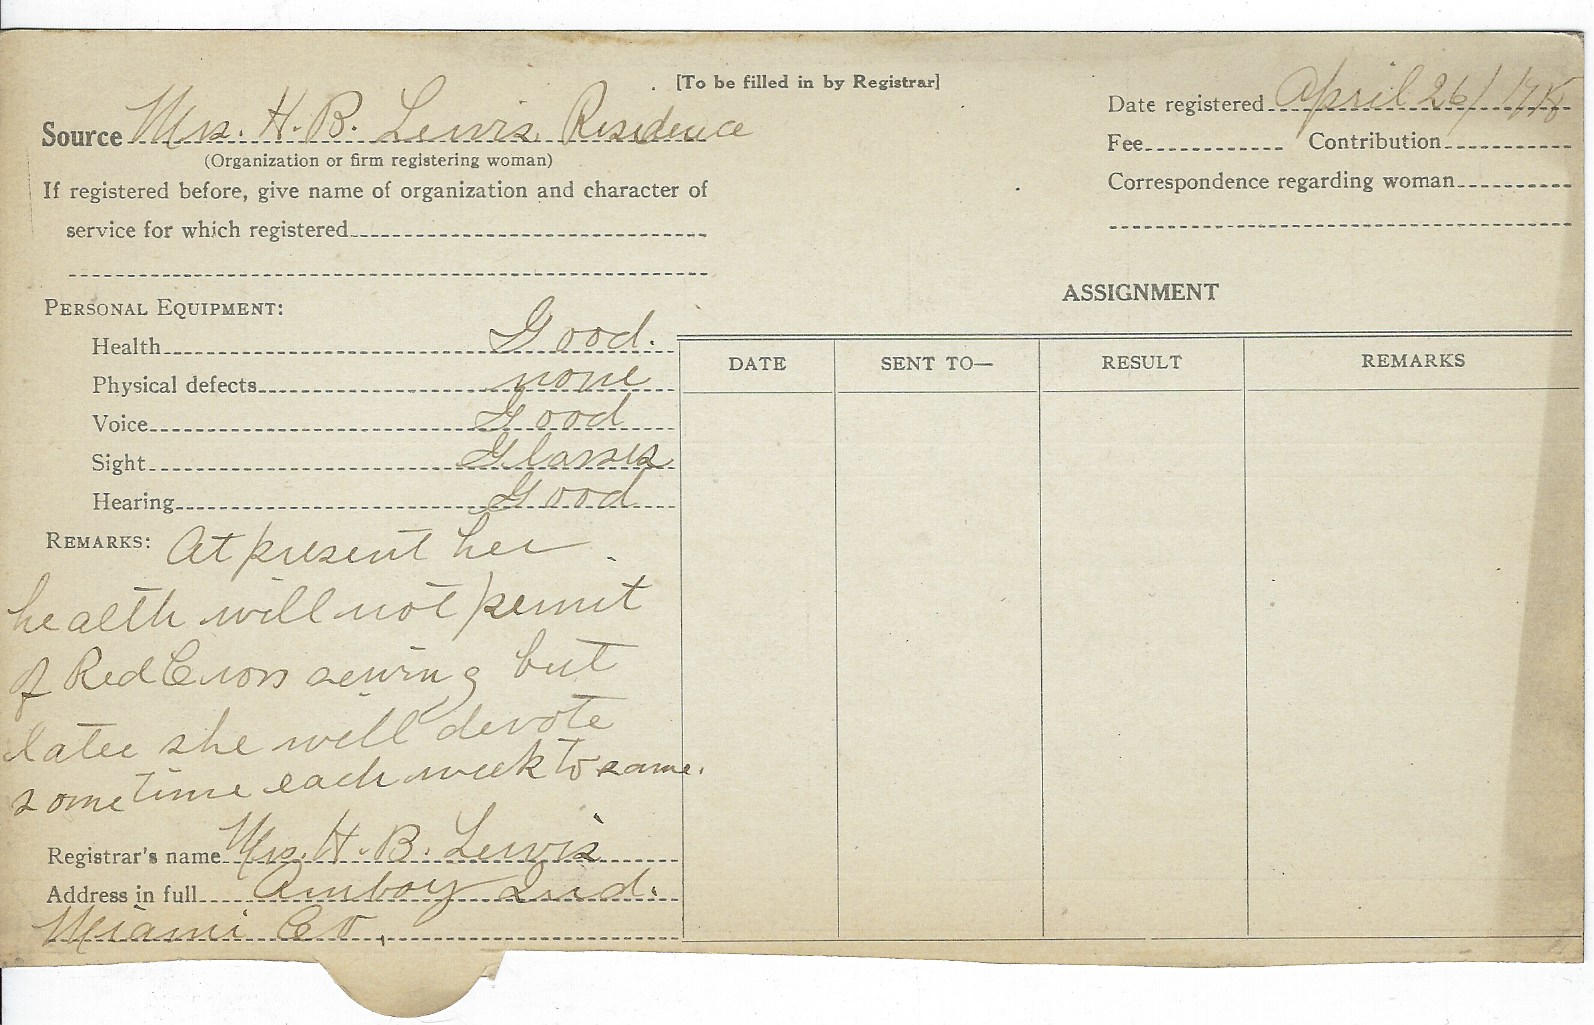 [To be filled in by Registrar]
Source Mrs. H. B. Lewis Residence
(Organization or firm registering woman)
If registered before, give name of organization and character of
service for which registered
Date registered April 26/1918
Fee Contribution
Correspondence regarding woman
PERSONAL EQUIPMENT:
Health Good.
Physical defects none
Voice Good
Sight Glasses
Hearing Good
REMARKS: At present her
health will not permit
of Red Cross sewing but
later she will devote
some time each week to same.
Registrar's name Mrs. H. B. Lewis
Address in full Amboy Ind.
Miami Co.
ASSIGNMENT
DATE SENT TO— RESULT REMARKS